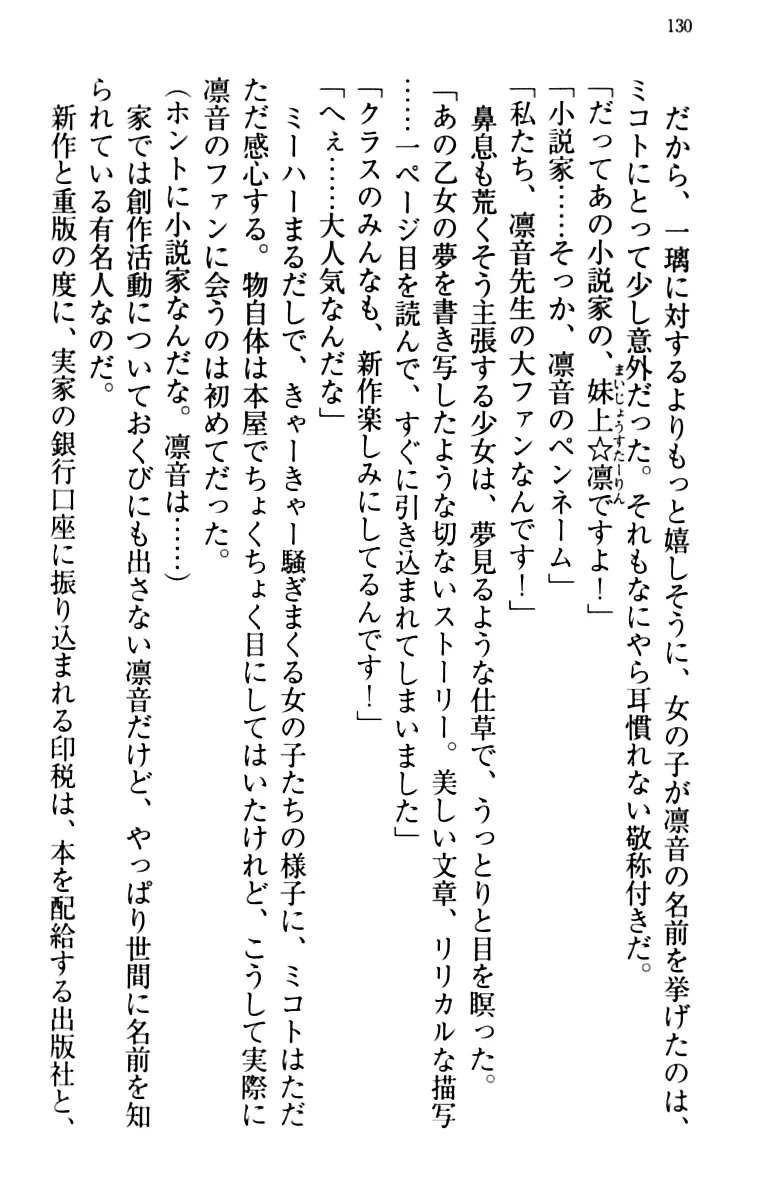 130
だから、一璃に対するよりもっと嬉しそうに、女の子が凛音の名前を挙げたのは、
ミコトにとって少し意外だった。それもなにやら耳慣れない敬称付きだ。
「だってあの小説家の、妹上☆凛ですよ！」
まいじょうすたーりん
「小説家……そっか、凛音のペンネーム」
「私たち、凛音先生の大ファンなんです！」
鼻息も荒くそう主張する少女は、夢見るような仕草で、うっとりと目を瞑った。
「あの乙女の夢を書き写したような切ないストーリー。美しい文章、リリカルな描写
……一ページ目を読んで、すぐに引き込まれてしまいました」
「クラスのみんなも、新作楽しみにしてるんです！」
「へぇ……大人気なんだな」
ミーハーまるだしで、きゃーきゃー騒ぎまくる女の子たちの様子に、ミコトはただ
ただ感心する。物自体は本屋でちょくちょく目にしてはいたけれど、こうして実際に
凛音のファンに会うのは初めてだった。
（ホントに小説家なんだな。凛音は……）
家では創作活動についておくびにも出さない凛音だけど、やっぱり世間に名前を知
られている有名人なのだ。
新作と重版の度に、実家の銀行口座に振り込まれる印税は、本を配給する出版社と、